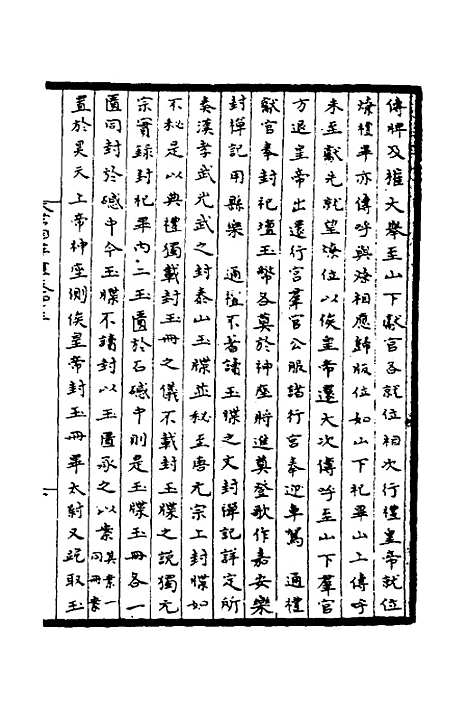 傳呼及權火舉至山下獻官各就位相次行禮皇帝就位
燎禮畢亦傳呼與燎相應歸版位如山下祀畢山上傳呼
未至獻先就望燎位以俟皇帝還大次傳呼至山下羣官
方退皇帝出還行宮羣官公服詣行宮奉迎車駕　通禮
獻官奉封祀壇玉幣各奠於神座將進奠登歌作嘉安樂
封禪記用縣樂　通禮不著讀玉牒之文封禪記詳定所
奏漢孝武光武之封泰山玉牒並秘至唐元宗上封牒如
不秘是以典禮獨載封玉冊之儀不載封玉牒之說獨元
宗實錄封祀畢內二玉匱於石䃭中則是玉牒玉冊各一
匱同封於䃭中今玉牒不請封以玉匱承之以案其案一同冊案
置於昊天上帝神座側俟皇帝封玉冊畢太尉又跪取玉